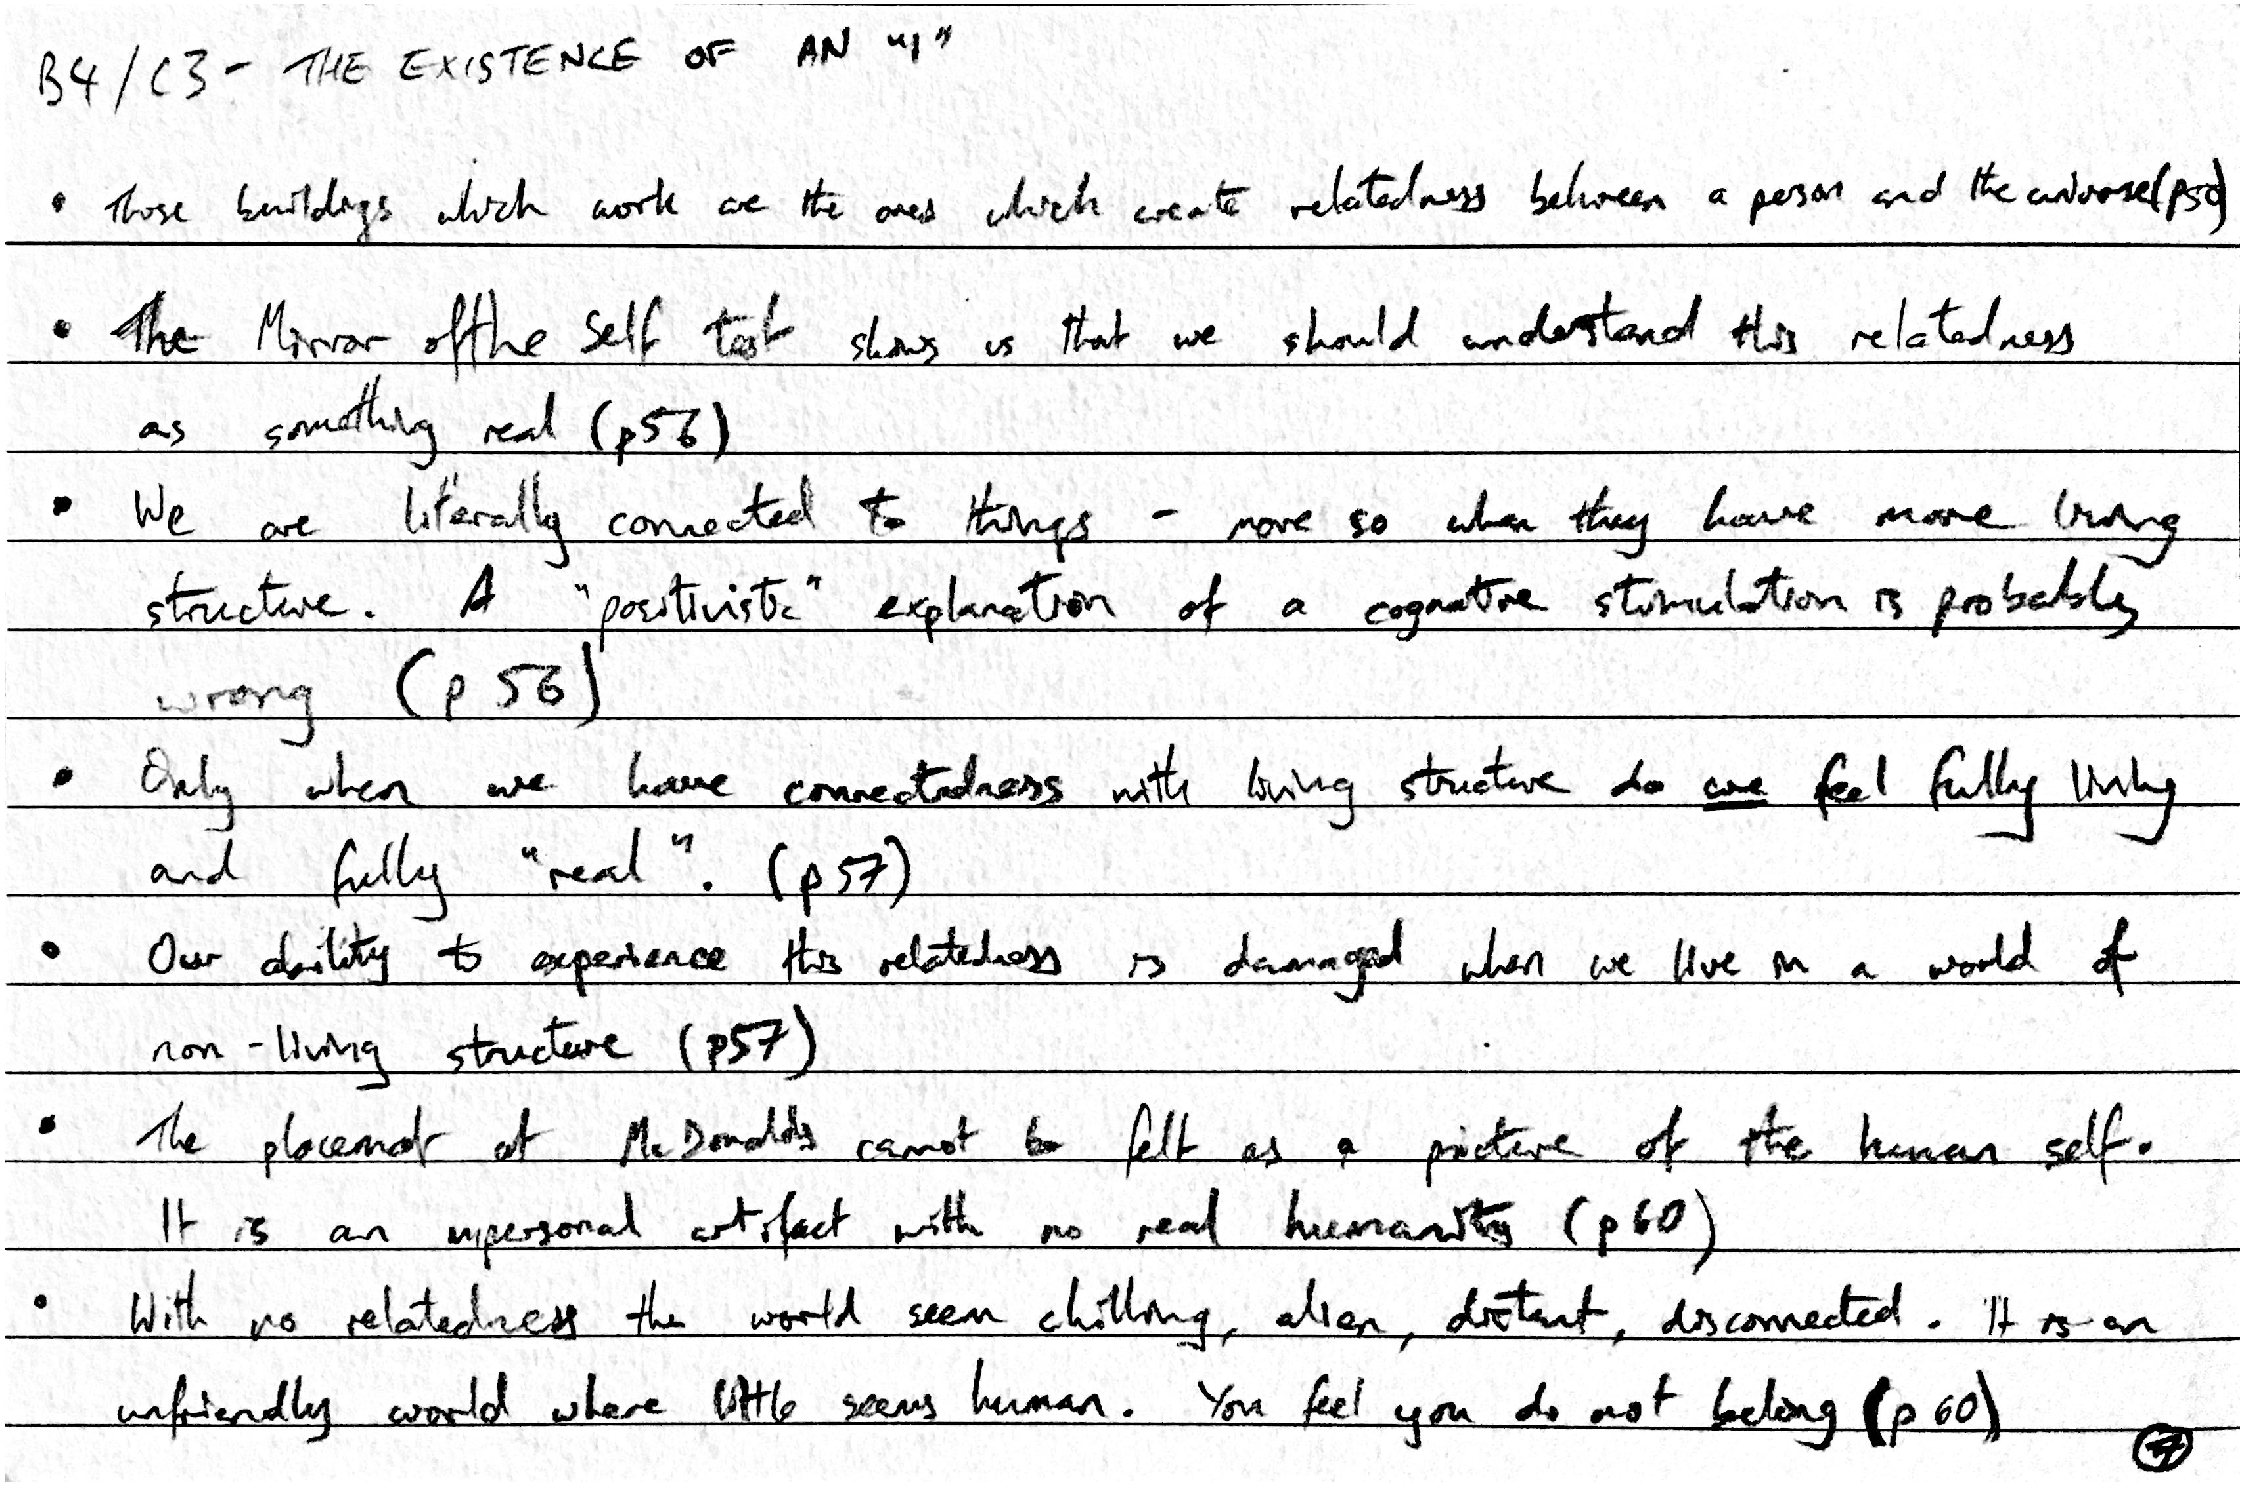 B4/C3 - THE EXISTENCE OF AN "I"
• Those buildings which work are the ones which create relatedness between a person and the universe (p50)
• The Mirror of the Self test shows us that we should understand this relatedness
as something real (p56)
• We are literally connected to things - more so when they have more living
structure. A "positivistic" explanation of a cognative stimulation is probably
wrong (p 56)
• Only when we have connectedness with living structure do we feel fully living
and fully "real". (p57)
• Our ability to experience this relatedness is damaged when we live in a world of
non-living structure (p57)
• The placemat at McDonalds cannot be felt as a picture of the human self.
It is an impersonal artifact with no real humanity (p60)
• With no relatedness the world seem chilling, alien, distant, disconnected. It is an
unfriendly world where little seems human. You feel you do not belong (p60)